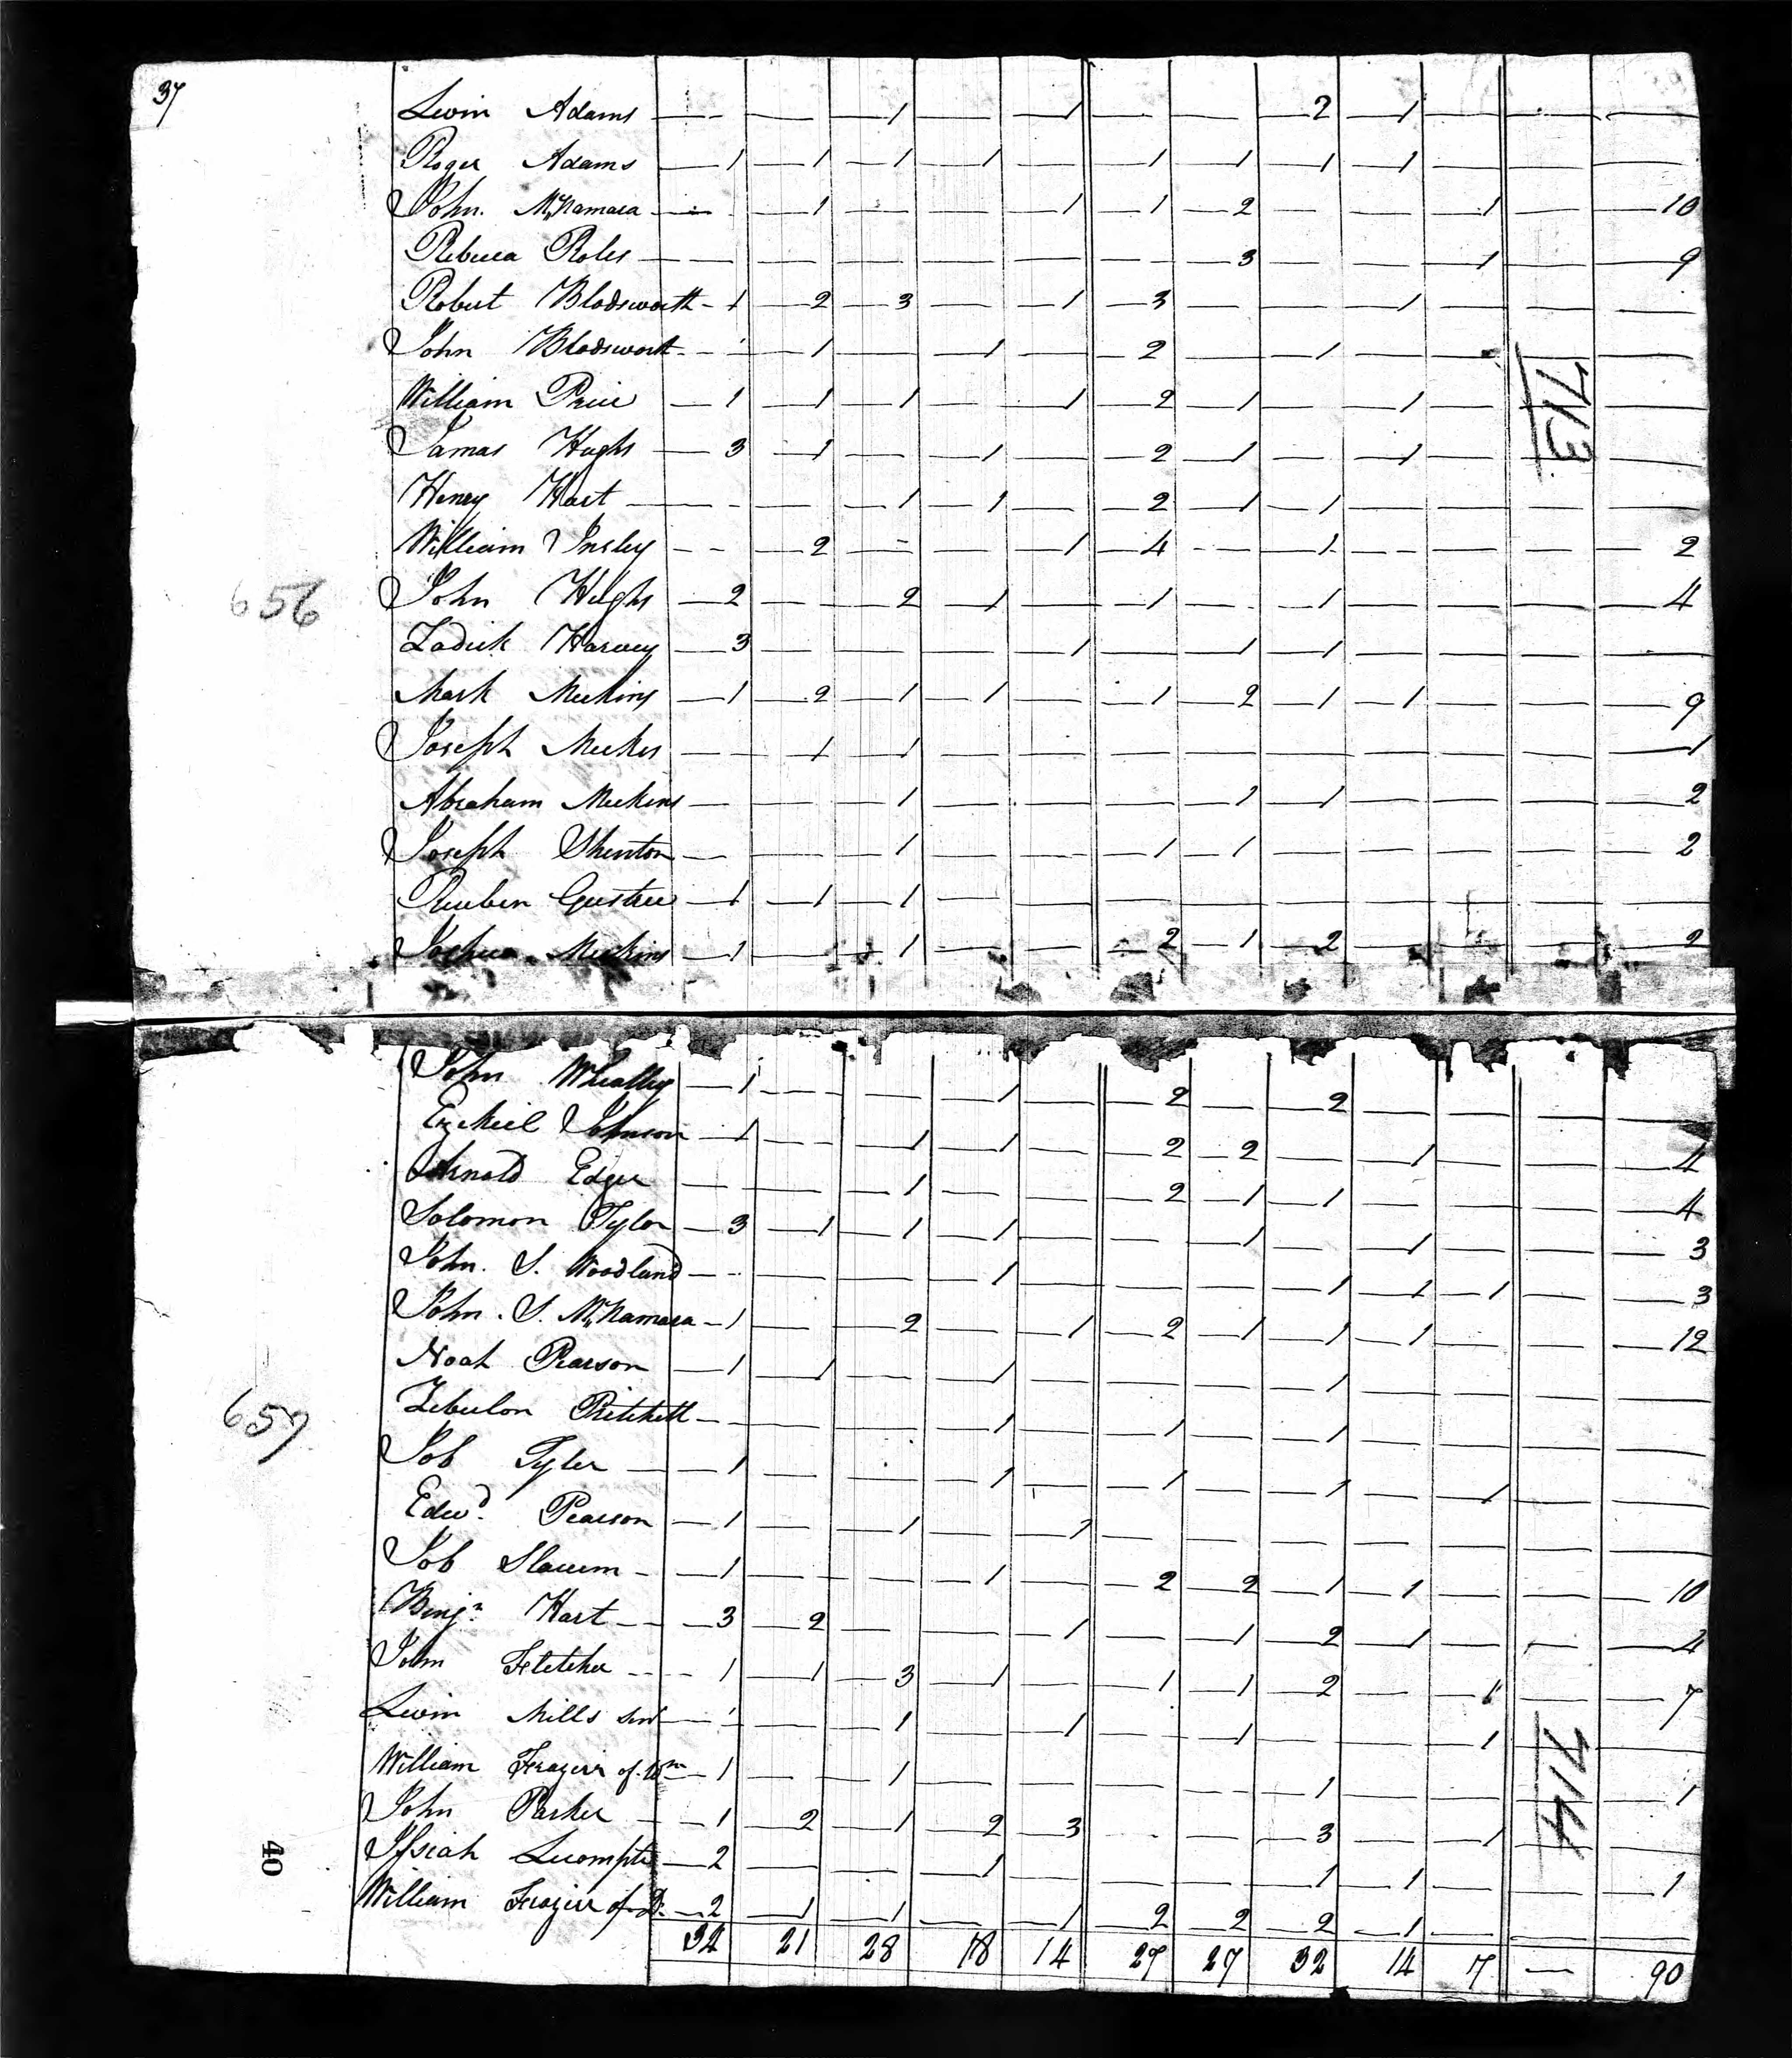 37
Lewin Adams — — 1 — 1 — — 2 1 — — —
Roger Adams 1 1 1 1 — 1 1 1 1 — — —
John McNamara — 1 — — 1 1 2 — — 1 — 10
Rebecca Roles — — — — — — 3 — — 1 — 9
Robert Blodsworth 1 2 3 — 1 3 — — 1 — — —
John Blodsworth 1 1 — 1 — 2 — 1 — — — —
William Price 1 1 1 — 1 2 1 — 1 — — —
713
James Hughs 3 1 — 1 — 2 1 — 1 — — —
Henry Hart — — 1 1 — 2 1 1 — — — —
William Insley — 2 — — 1 4 — 1 — — — 2
656
John Hughs 2 — 2 1 — 1 — 1 — — — 4
Zadick Harvey 3 — — — 1 — 1 1 — — — —
Mark Meekins 1 2 1 1 — 1 2 1 1 — — 9
Joseph Meekes — 1 1 — — — — — — — — 1
Abraham Meekins — — 1 — — — 1 1 — — — 2
Joseph Shenton — — 1 — — 1 1 — — — — 2
Reuben 1 1 1 — — — — — — — — —
Joshua Meekins 1 — 1 — — 2 1 2 — — — 2
John Whealley 1 — — 1 — 2 — 2 — — — —
Ezekiel Johnson 1 — 1 1 — 2 2 — 1 — — 4
Arnald Edger — — 1 — — 2 1 1 — — — 4
Solomon Tylor 3 1 1 1 — — 1 — 1 — — 3
John. S. Woodland — — — 1 — — — 1 1 1 — 3
John. S. McNamara 1 — 2 — 1 2 1 1 1 — — 12
Noah Pearson 1 1 — 1 — — — 1 — — — —
657
Zebulon Pritchett — — — 1 — 1 — 1 — — — —
Job Tyler 1 — — 1 — 1 — 1 — 1 — —
Edwd. Pearson 1 — 1 — 1 — — — — — — —
Job Slacum 1 — — 1 — 2 2 1 1 — — 10
Benjn. Hart 3 2 — — 1 — 1 2 1 — — 4
John Fletcher 1 1 3 1 — 1 1 2 — 1 — 7
Lewin Mills 1 — 1 — 1 — 1 — — 1 — —
714
William Frazier of Wm 1 — 1 — — — — 1 — — — 1
John Parker 1 2 1 2 3 — — 3 — 1 — —
40
Isaiah Lecompte 2 — — 1 — — — 1 1 — — 1
William Frazier of D. 2 1 1 — 1 2 2 2 1 — — —
32 21 28 18 14 27 27 32 14 7 — 90